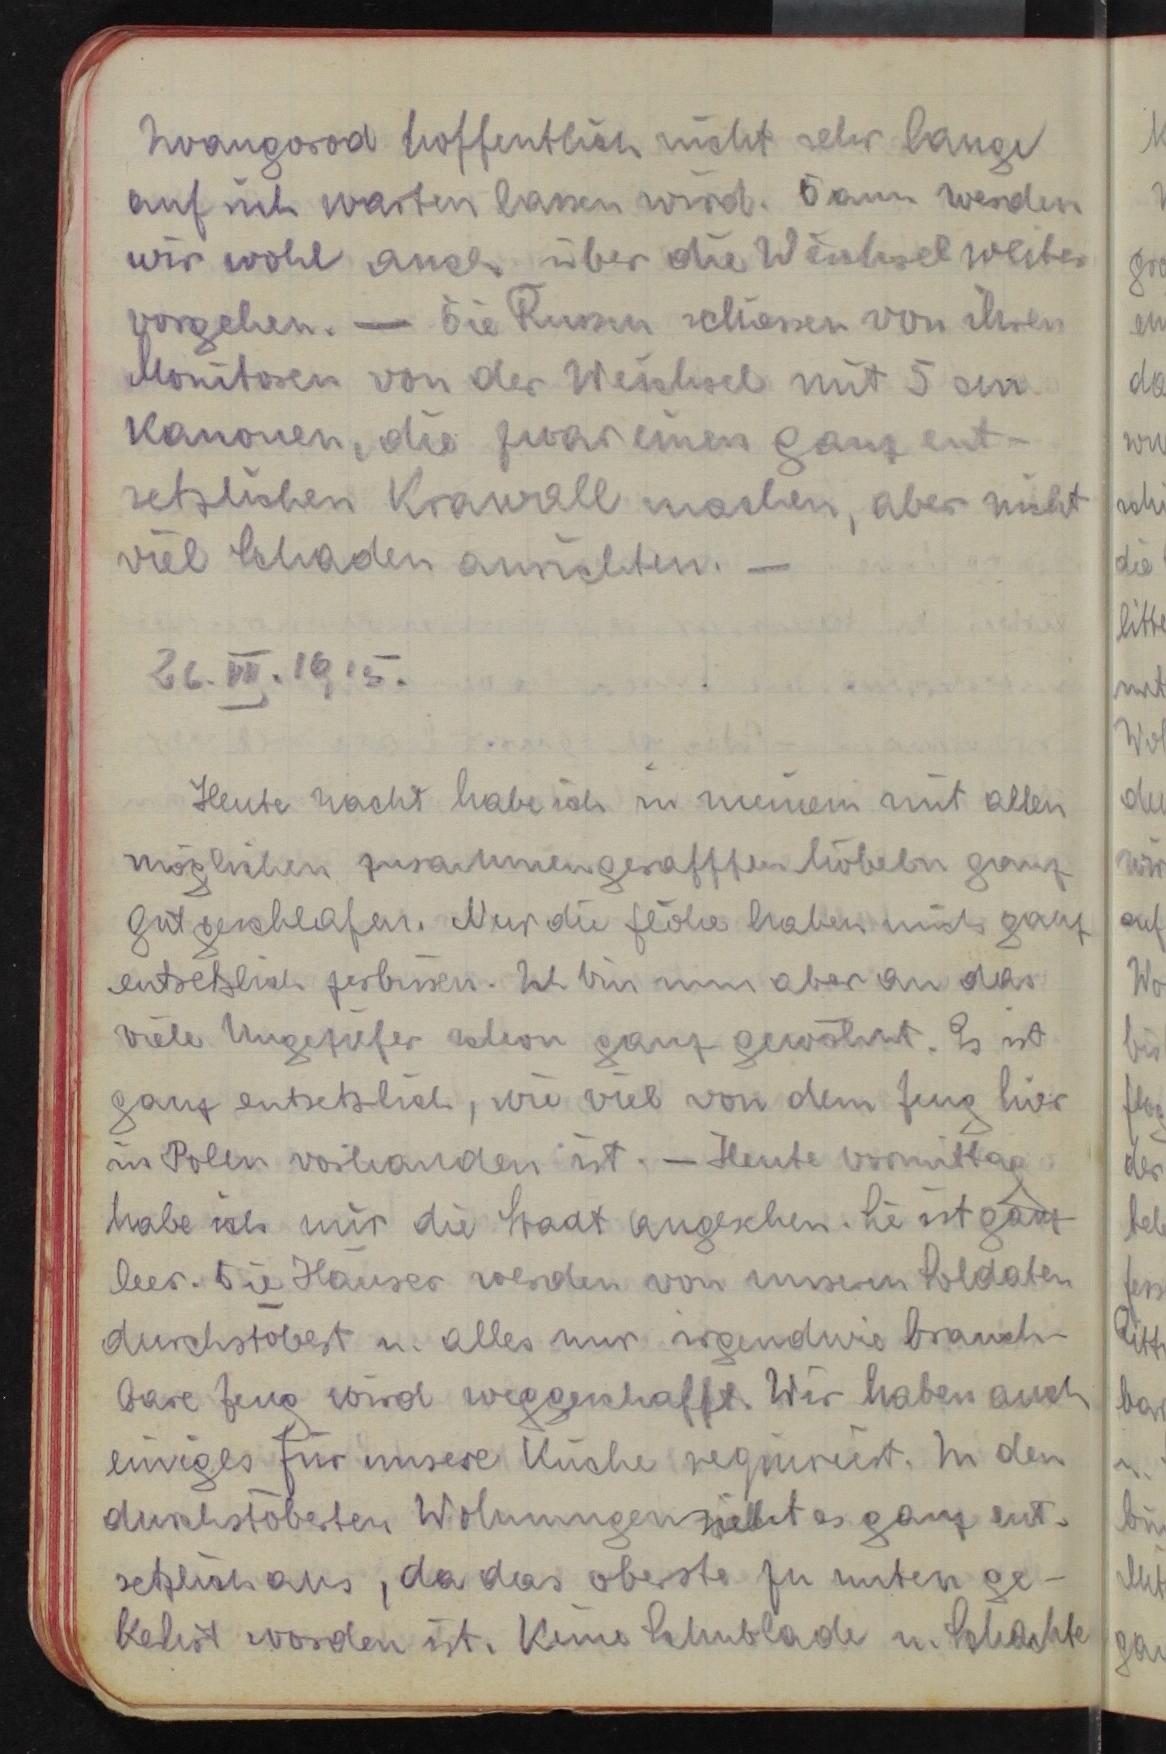 Iwangorod hoffentlich nicht sehr lange
auf sich warten lassen wird. Dann werden
wir wohl auch über die Weichsel weiter
vorgehen. — Die Russen schiessen von ihren
Monitoren von der Weichsel mit 5 cm
Kanonen, die zwar einen ganz ent-
setzlichen Krawall machen, aber nicht
viel Schaden anrichten. —
26. VII. 1915.
Heute nacht habe ich in meinem mit allen
möglichen zusammengerafften Möbeln ganz
gut geschlafen. Nur die Flöhe haben mich ganz
entsetzlich zerbissen. Ich bin nun aber an das
viele Ungeziefer schon ganz gewöhnt. Es ist
ganz entsetzlich, wie viel von dem Zeug hier
in Polen vorhanden ist. — Heute vormittag
habe ich mir die Stadt angesehen. Sie ist ganz
leer. Die Häuser werden von unsern Soldaten
durchstöbert u. alles nur irgendwie brauch-
bare Zeug wird weggeschafft. Wir haben auch
einiges für unsere Küche requiriert. In den
durchstöberten Wohnungen sieht es ganz ent-
setzlich aus, da das oberste zu unten ge-
kehrt worden ist. Keine Schublade u. Schachte